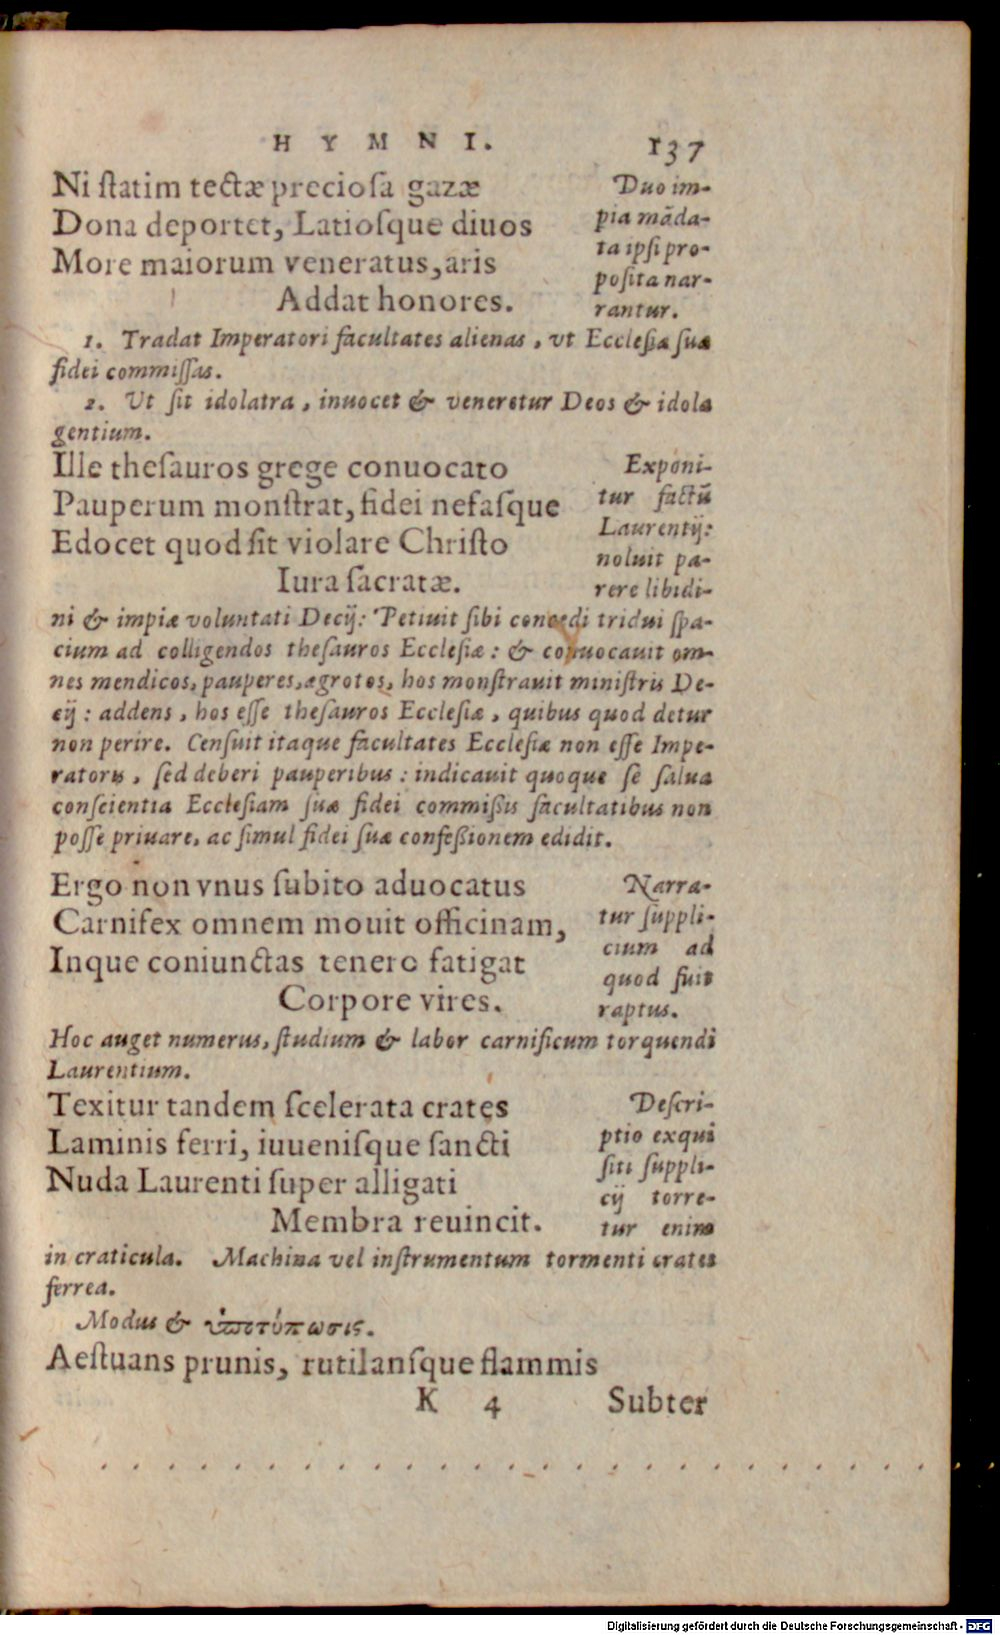 HYMNI. 137
Ni ſtatim tectæ precioſa gazæ
Dona deportet, Latioſque diuos
More maiorum veneratus, aris
Addat honores.
Duo im-
pia mãda-
ta ipſi pro-
poſita nar-
rantur.
1. Tradat Imperatori facultates alienas, vt Eccleſiæ ſuæ
fidei commiſſas.
2. Ut ſit idolatra, inuocet & veneretur Deos & idola
gentium.
Ille theſauros grege conuocato
Pauperum monſtrat, fidei nefaſque
Edocet quod ſit violare Chriſto
Iura ſacratæ.
Exponi-
tur factũ
Laurentij:
noluit pa-
rere libidi-
ni & impiæ voluntati Decij: Petiuit ſibi concedi tridui ſpa-
cium ad colligendos theſauros Eccleſiæ: & conuocauit om-
nes mendicos, pauperes, ægrotos, hos monſtrauit miniſtris De-
cij: addens, hos eſſe theſauros Eccleſiæ, quibus quod detur
non perire. Cenſuit itaque facultates Eccleſiæ non eſſe Impe-
ratoris, ſed deberi pauperibus: indicauit quoque ſe ſalua
conſcientia Eccleſiam ſuæ fidei commißis facultatibus non
poſſe priuare, ac ſimul fidei ſuæ confeßionem edidit.
Ergo non vnus ſubito aduocatus
Carnifex omnem mouit officinam,
Inque coniunctas tenero fatigat
Corpore vires.
Narra-
tur ſuppli-
cium ad
quod fuit
raptus.
Hoc auget numerus, ſtudium & labor carnificum torquendi
Laurentium.
Texitur tandem ſcelerata crates
Laminis ferri, iuueniſque ſancti
Nuda Laurenti ſuper alligati
Membra reuincit.
Deſcri-
ptio exqui
ſiti ſuppli-
cij torre-
tur enim
in craticula. Machina vel inſtrumentum tormenti crates
ferrea.
Modus & ὑποτύπωσις.
Aeſtuans prunis, rutilanſque flammis
K 4 Subter
Digitalisierung gefördert durch die Deutsche Forschungsgemeinschaft - DFG